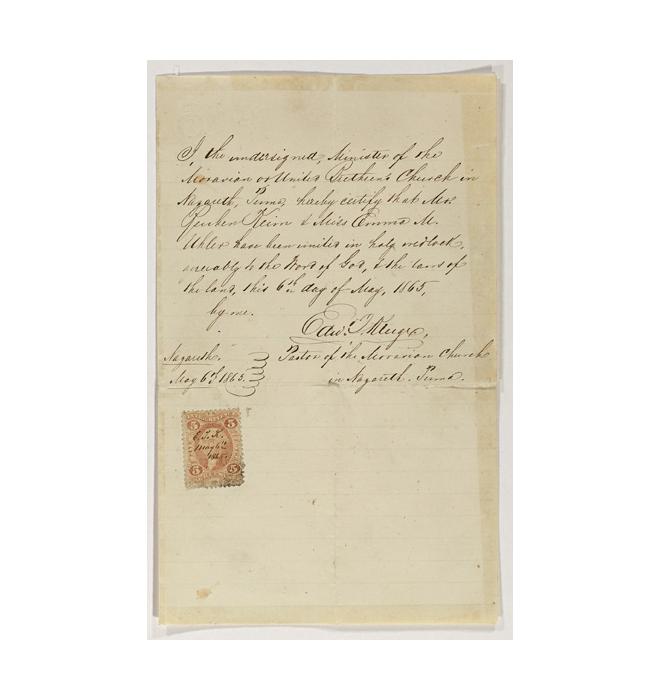 I, the undersigned, Minister of the
Moravian or United Brethren's Church in
Nazareth, Penna, hereby certify that Mr.
Reuben Keim & Miss Emma M.
Uhler have been united in holy wedlock,
agreeably to the Word of God, & the laws of
the land, this 6th day of May, 1865,
by me.
Edw. T. Kluge,
Pastor of the Moravian Church
in Nazareth. Penna.
Nazareth.
May 6th 1865.
5 5
E. T. K.
May 6th
1865.
5 5